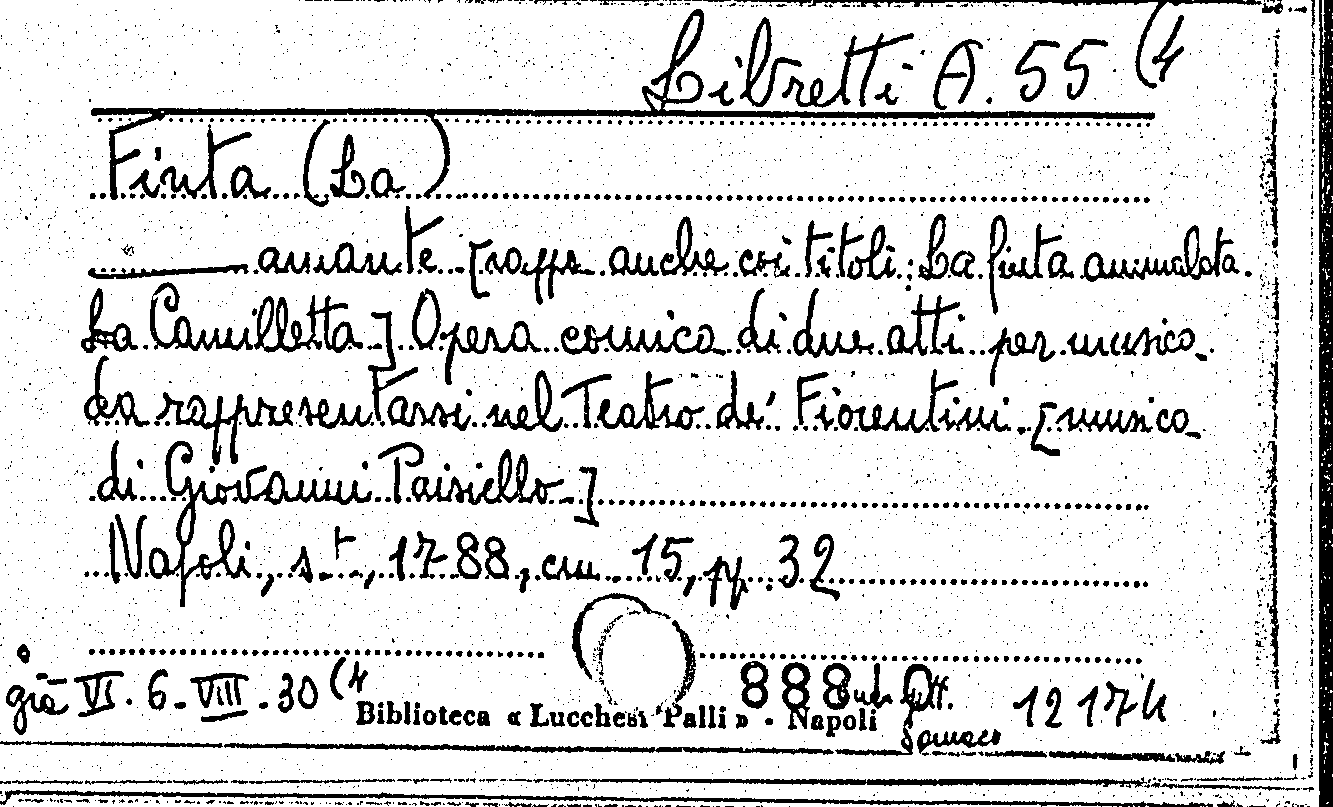 Libretti A. 55 (4
Finta (La)
amante [rappr. anche coi titoli: La finta ammalata.
La Camilletta] Opera comica di due atti per musica
da rappresentarsi nel Teatro de' Fiorentini. [musica
di Giovanni Paisiello]
Napoli, s.t., 1788, cm. 15, pp. 32
già VI. 6. VIII. 30 (4
888
12174
Biblioteca « Lucchesi Palli » - Napoli